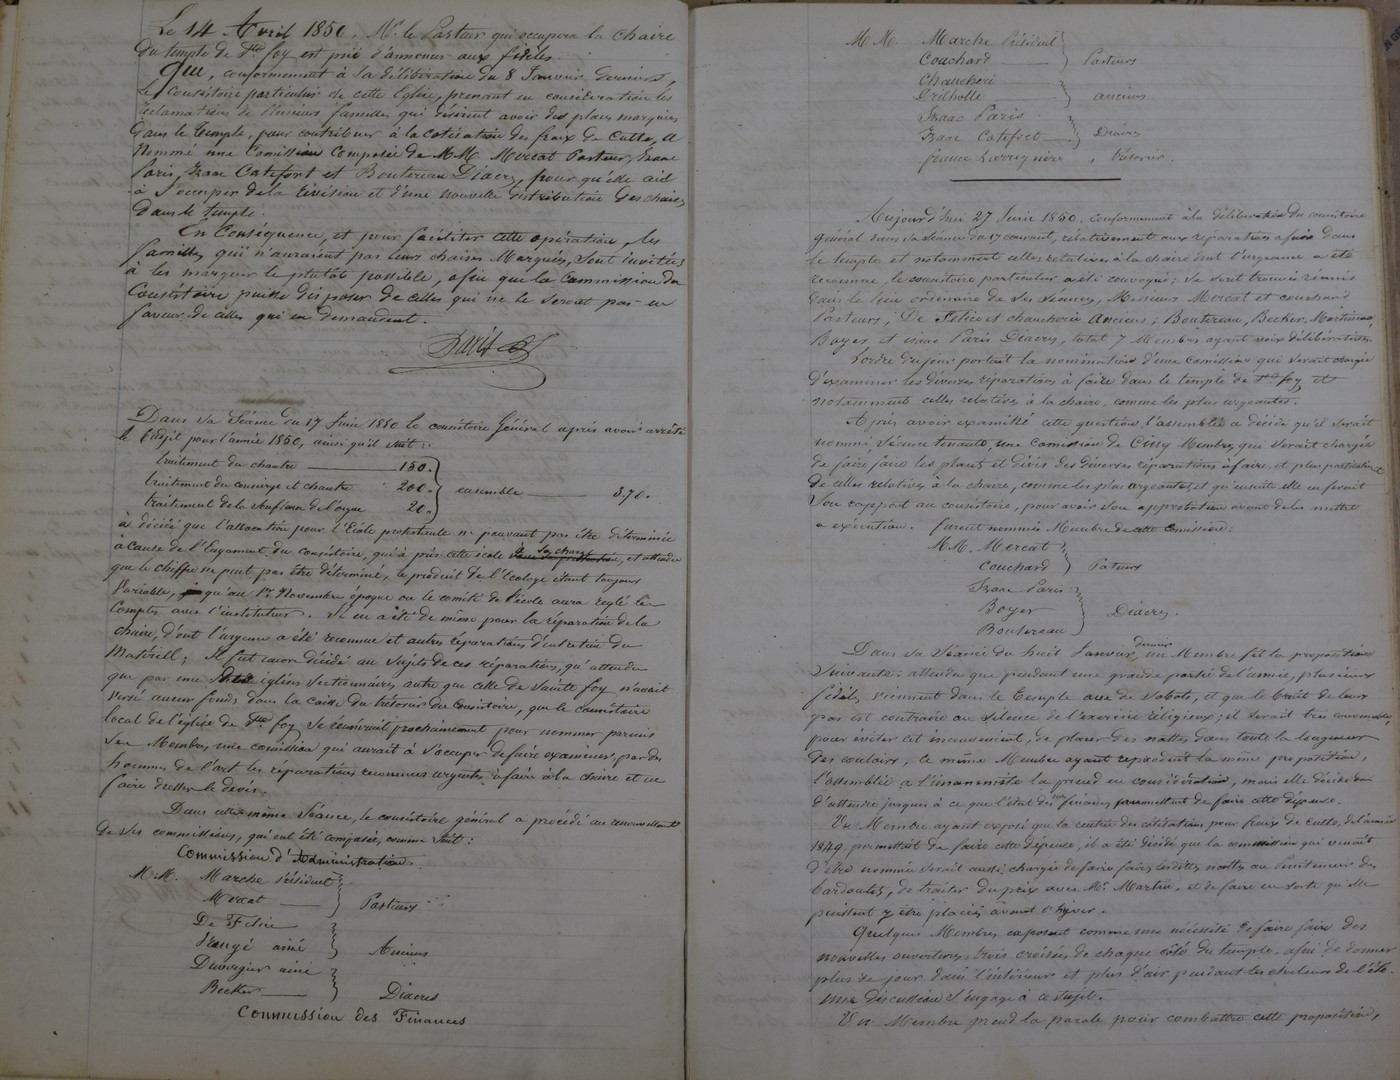 Le 14 Avril 1850. Mr le Pasteur qui occupera la chaire
du temple de Ste foy est prié d'annoncer aux fidèles.
Que, conformement à la délibération du 8 Janvier dernier,
le Consistoire particulier de cette Eglise, prenant en considération les
réclamations de plusieurs familles qui désirent avoir des places marquées
dans le temple, pour contribuer à la cotisation des fraix de Culte, a
nommé une Comission Composée de MM. Mercat Pasteur, Isaac
Paris, Isaac Catefort et Boutereau Diacres, pour qu'elle aid
à s'occuper de la révision et d'une nouvelle distribution des chaises
dans le temple.
En Conséquence, et pour faciliter cette opération, les
familles qui n'auraient pas leurs chaises Marquées, sont invitées
à les marquer le plutôt possible, afin que la Commission du
Consistoire puisse disposer de celles qui ne le seront pas en
faveur de celles qui en demandent.
Paris
Dans sa Séance du 17 Juin 1850 le consistoire Général après avoir arrêté
le Budjet pour l'année 1850, ainsi qu'il suit :
traitement du chantre 150.
traitement du concierge et chantre 200. ensemble 370.
traitement de la souffleur de l'orgue 20.
à décidé que l'allocation pour l'Ecole protestante ne pouvant pas être déterminée
à cause de l'Engament du consistoire, qui a pris cette école à sa charge, et attendu
que le chiffre ne peut pas être déterminé, le produit de l'Ecolage étant toujours
Variable, qu'au 1er Novembre époque ou le comité de l'école aura réglé les
Comptes avec l'instituteur. Il en a été de même pour la réparation de la
chaire, d'ont l'urgence a été reconnue et autres réparations d'entretien du
Matériell ; Il fut encore décidé au sujet de ces réparations, qu'attendu
que pas une églises sectionnaires autre que celle de Sainte foy n'avait
versé aucun fonds dans la caisse du trésorier du Consistoire, que le consistoire
local de l'église de Ste foy se réunirait prochainement pour nommer parmis
ses Membres, une comission qui aurait à s'occuper de faire examiner, par des
hommes de l'art les réparations reconnues urgentes à faire à la chaire et en
faire dresser le devis.
Dans cette même Séance, le consistoire général a procédé au renouvellement
de ses commissions, qui ont été composées, comme suit :
Commission d'Administration.
M.M. Marche Président
Mercat Pasteurs
De Félice
Prangé ainé Anciens
Duvergier ainé
Becker Diacres
Commission des Finances
MM. Marche Président
Couchard Pasteurs
Chaucherie
Drilholle anciens
Isaac Paris
Isaac Catefort Diacres
france Larregnère, trésorier.
Aujourd'hui 27 Juin 1850. conformement à la délibération du consistoire
général dans sa séance du 17 courant, relativement aux réparations a faire dans
le temple et notamment celles relatives à la chaire dont l'urgence a été
reconnue, le consistoire particulier a été convoqué ; se sont trouvés réunis
dans le lieu ordinaire de ses séances, Messieurs Mercat et couchard
Pasteurs, De Félice et chaucherie Anciens ; Boutereau, Becker, Martineau,
Boyer et isaac Paris Diacres, total 7 Membres ayant voix délibérative.
L'ordre du jour portait la nomination d'une Comission qui serait chargée
d'examiner les diverses réparations à faire dans le temple de Ste foy, et
notamment celles relatives à la chaire, comme les plus urgentes.
Après avoir examiné cette question l'assemblée a décidé qu'il serait
nommé, séance tenante, une Comission de Cinq Membres, qui serait chargée
de faire faire les plans et dévis des diverses réparations à faire, et plus particulièrement
de celles relatives à la chaire, comme les plus urgentes, et qu'ensuite elle en ferait
son rapport au consistoire, pour avoir son approbation avant de les mettre
a exécution. furent nommés Membres de cette Comission :
M.M. Mercat
Couchard Pasteurs
Isaac Paris
Boyer Diacres.
Boutereau
Dans sa Séance du huit Janvier dernier, un Membre fit la proposition
suivante : attendu que pendant une grande partie de l'année, plusieurs
fidèles viennent dans le temple avec de sabots, et que le bruit de leurs
pas est contraire au silence de l'exercice réligieux, il serait très convenable,
pour éviter cet inconvenient, de placer des nattes dans toute la longueur
des couloirs, le même Membre ayant reproduit la même proposition,
l'assemblée a l'unanimité la prend en considération, mais elle décide
d'attendre jusques à ce que l'état des finances permettent de faire cette dépense.
Un Membre ayant exposé que la rentrée des cotisations pour fraix de culte, de l'année
1849, permettait de faire cette dépense, il a été décidé que la comission qui venait
d'être nommée serait aussi chargée de faire faire lesdittes nattes au Penitencier des
bardoulets, de traiter du prix avec Mr. Martin, et de faire en sorte qu'elle
puissent y être placées avant l'hyver.
Quelques Membres exposent comme une nécéssité de faire faire des
nouvelles ouvertures, trois croisées de chaque côté du temple, afin de donner
plus de jour dans l'intérieur et plus d'air pendant les chaleurs de l'été.
une discussion s'engage à ce sujet.
Un Membre prend la parole pour combattre cette proposition,